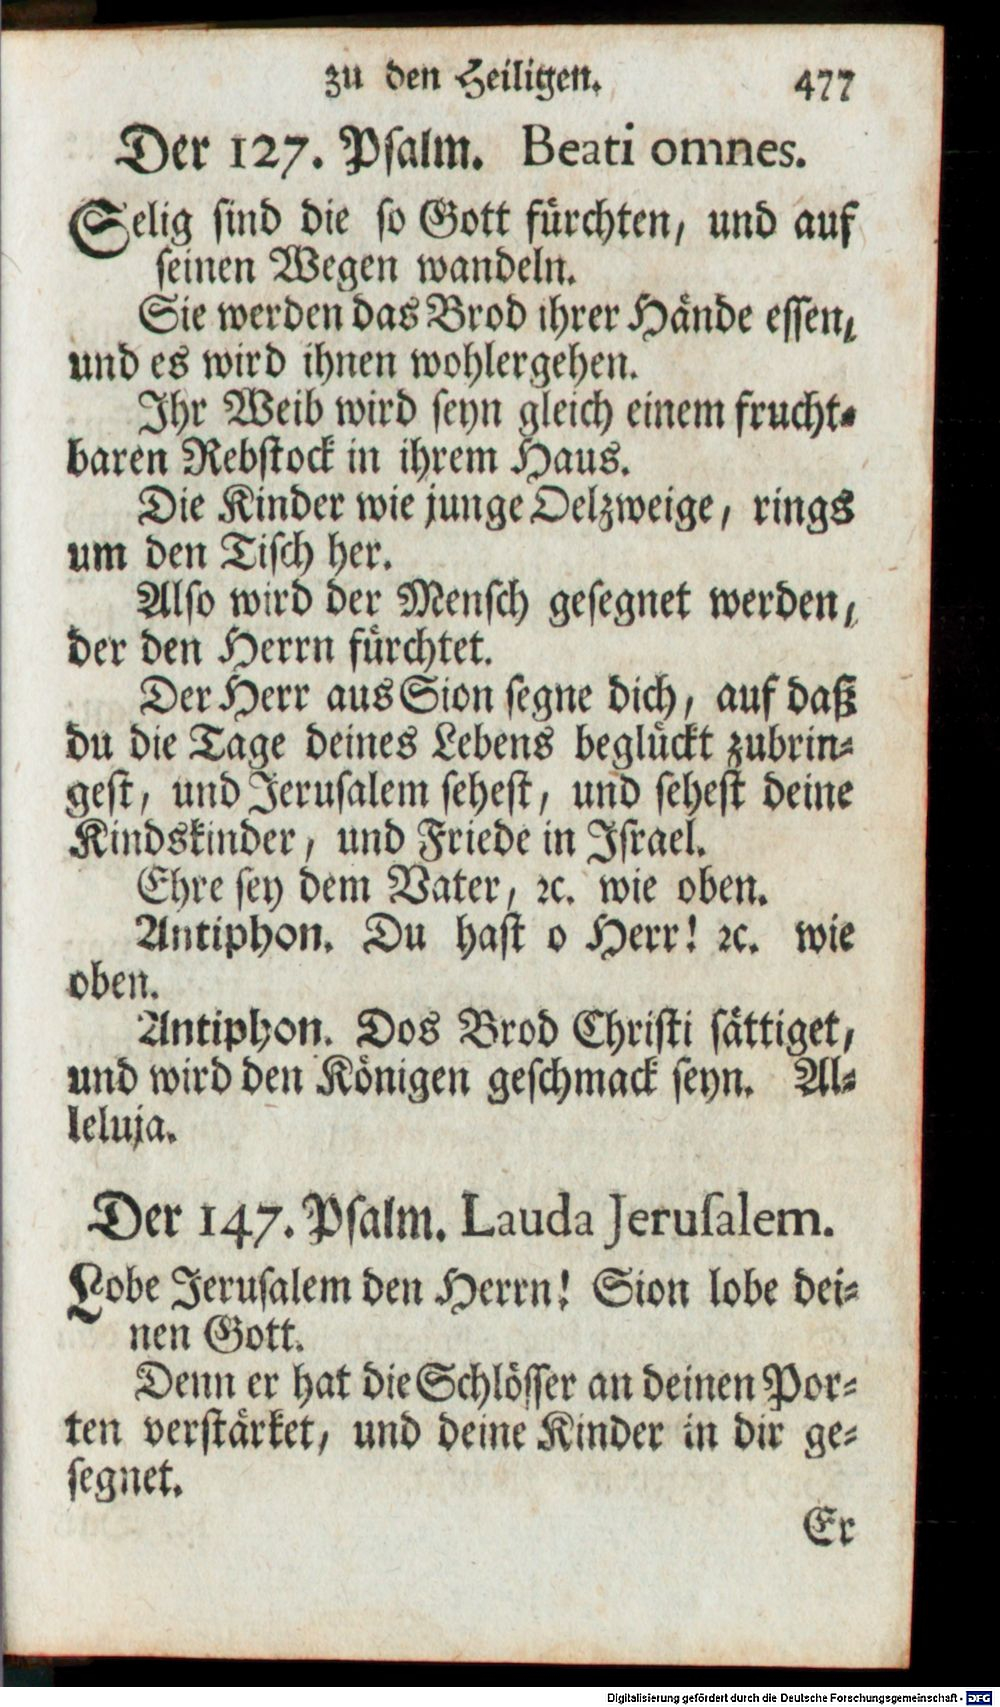 zu den Heiligen. 477
Der 127. Psalm. Beati omnes.
Selig sind die so Gott fürchten, und auf
seinen Wegen wandeln.
Sie werden das Brod ihrer Hände essen,
und es wird ihnen wohlergehen.
Ihr Weib wird seyn gleich einem frucht-
baren Rebstock in ihrem Haus.
Die Kinder wie junge Oelzweige, rings
um den Tisch her.
Also wird der Mensch gesegnet werden,
der den Herrn fürchtet.
Der Herr aus Sion segne dich, auf daß
du die Tage deines Lebens beglückt zubrin-
gest, und Jerusalem sehest, und sehest deine
Kindskinder, und Friede in Israel.
Ehre sey dem Vater, ꝛc. wie oben.
Antiphon. Du hast o Herr! ꝛc. wie
oben.
Antiphon. Dos Brod Christi sättiget,
und wird den Königen geschmack seyn. Al-
leluja.
Der 147. Psalm. Lauda Jeruſalem.
Lobe Jerusalem den Herrn! Sion lobe dei-
nen Gott.
Denn er hat die Schlösser an deinen Por-
ten verstärket, und deine Kinder in dir ge-
segnet.
Er
Digitalisierung gefördert durch die Deutsche Forschungsgemeinschaft - DFG